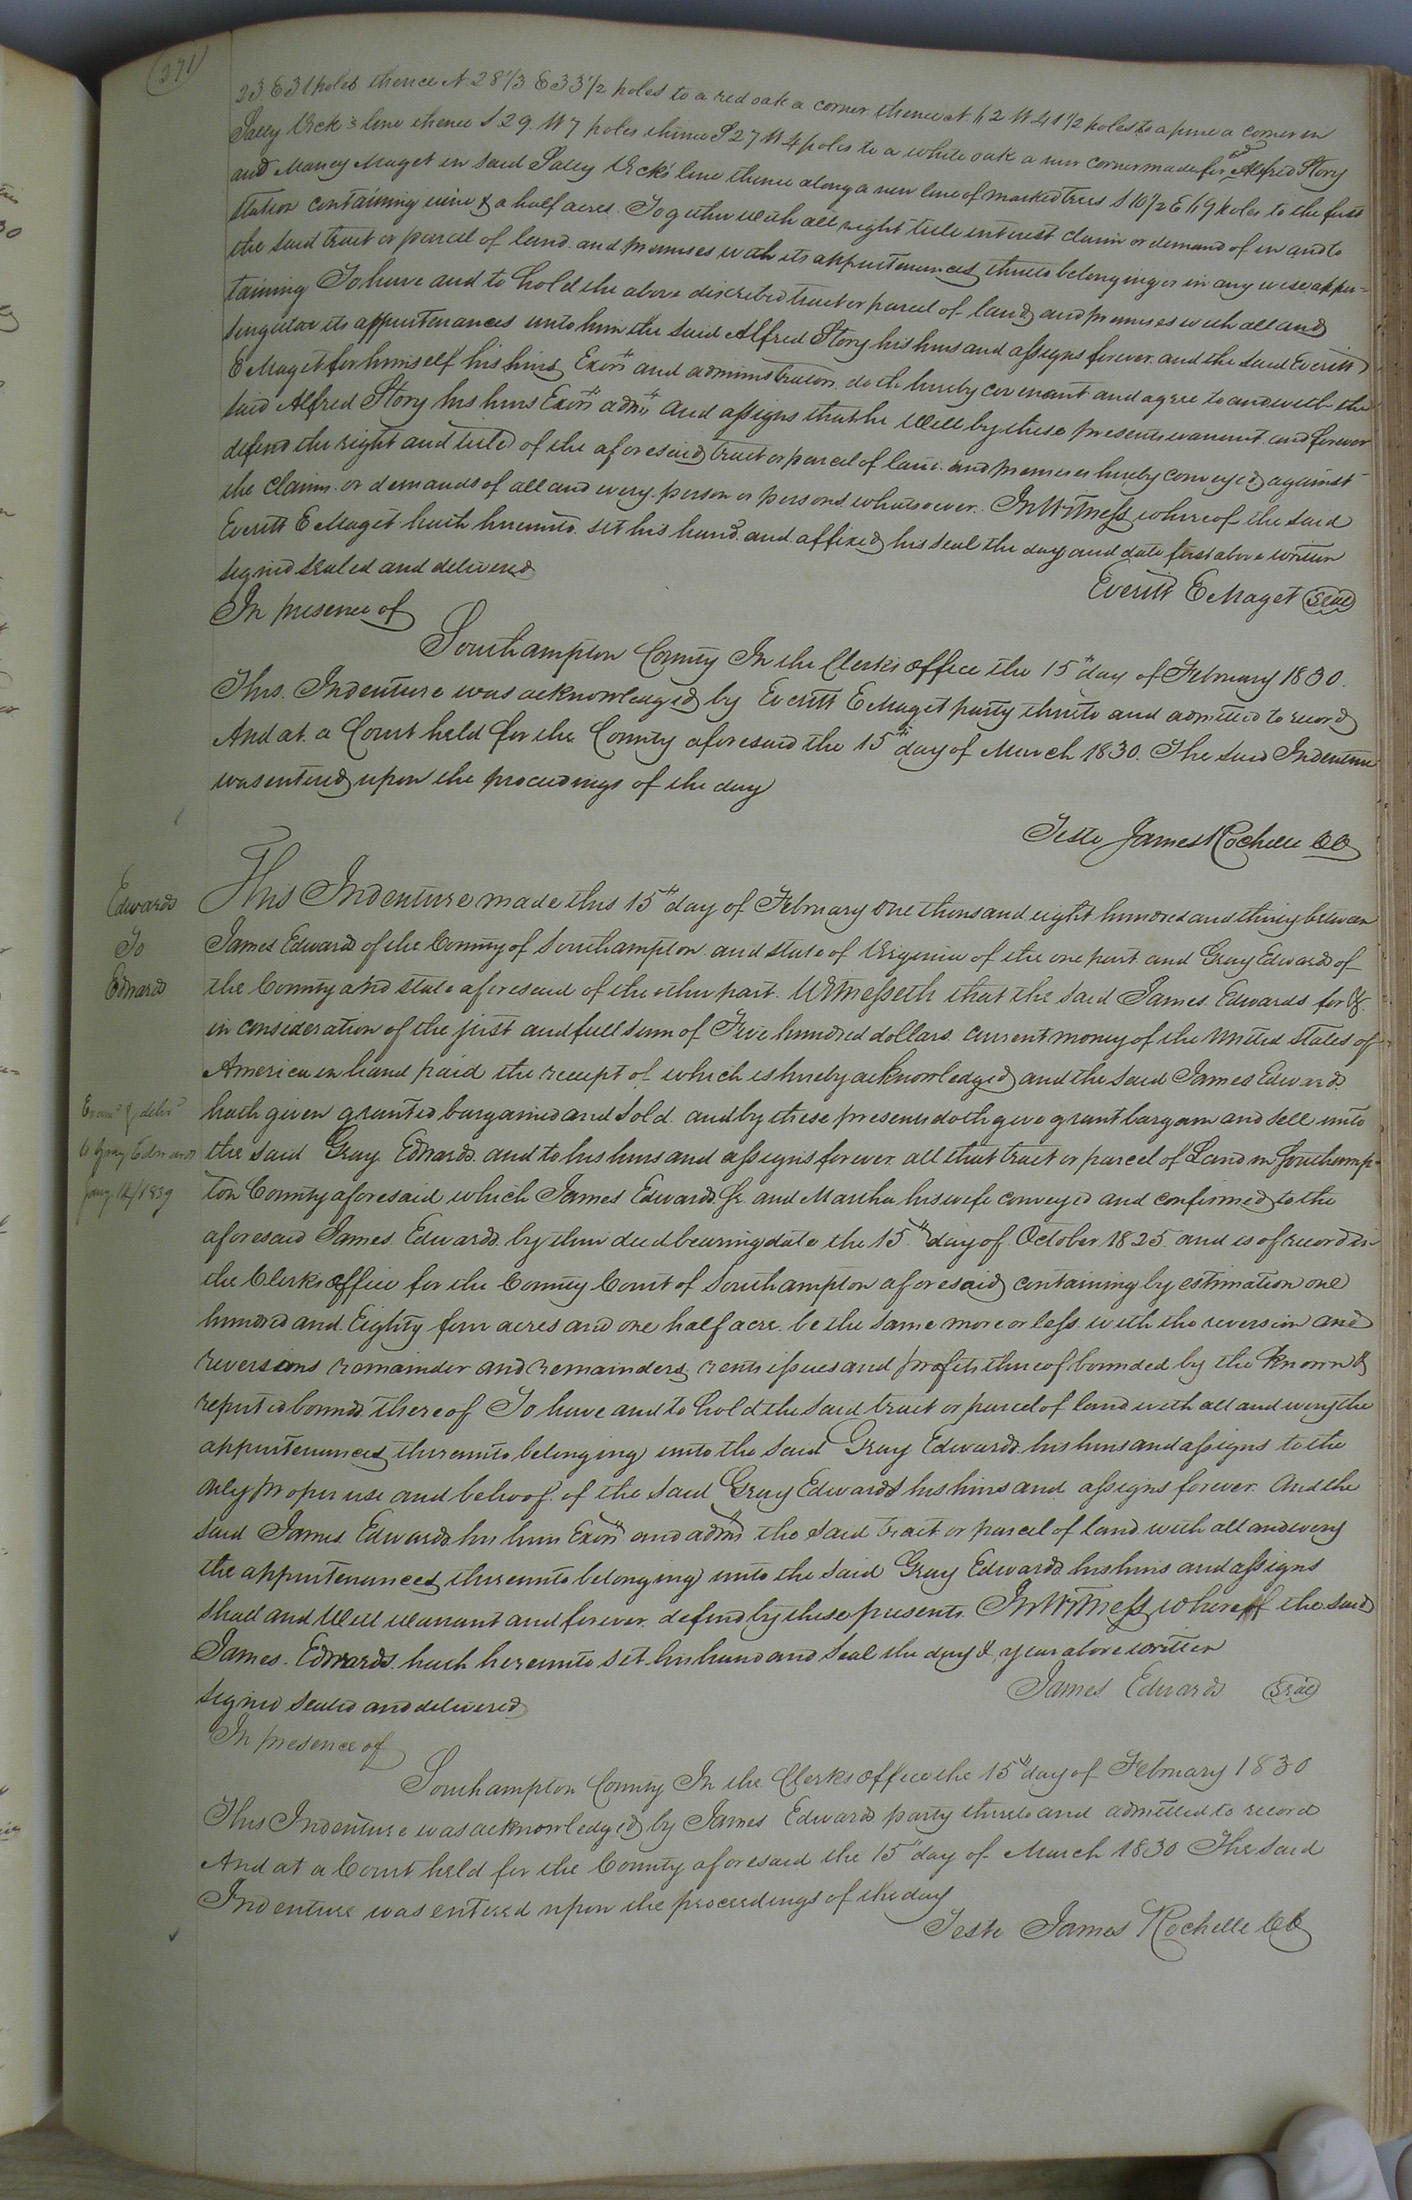 (271)
23 E 31 poles thence N 28 1/3 E 33 1/2 poles to a red oak a corner thence N 62 W 41 1/2 poles to a pine a corner in
Sally Vick's line thence S 29 W 7 poles thence S 27 W 4 poles to a white oak a new corner made for sd Alfred Story
and Nancy Maget in said Sally Vicks line thence along a new line of marked trees S 10 1/2 E 169 poles to the first
station containing nine & a half acres. Together with all right title interest claim or demand of in and to
the said tract or parcel of land and premises with its appurtenances thereto belonging or in any wise apper=
taining To have and to hold the above discribed tract or parcel of land and premises with all and
singular its appurtenances unto him the said Alfred Story his heirs and assigns forever. and the said Everitt
E Maget for himself his heirs Exors and administrators doth hereby covenant and agree to and with the
said Alfred Story his heirs Exors admrs and assigns that he will by these presents warrant and forever
defend the right and title of the aforesaid tract or parcel of land and premises hereby conveyed against
the claims or demands of all and every person or persons whatsoever. In Witness whereof the said
Everitt E Maget hath hereunto set his hand and affixed his seal the day and date first above written
signed sealed and delivered
Everitt E Maget (Seal)
In presence of
Southampton County In the Clerks office the 15th day of February 1830.
This Indenture was acknowledged by Everitt E Maget party thereto and admitted to record
And at a Court held for the County aforesaid the 15th day of March 1830. The said Indenture
was entered upon the proceedings of the day
Teste James Rochelle CC
Edwards
To
Edwards
This Indenture made this 15th day of February one thousand eight hundred and thirty between
James Edwards of the County of Southampton and state of Virginia of the one part and Gray Edwards of
the County and state aforesaid of the other part. Witnesseth that the said James Edwards for &
in consideration of the just and full sum of Five hundred dollars current money of the United States of
America in hand paid the receipt of which is hereby acknowledged and the said James Edwards
Examd & delivd
to Gray Edwards
Jany 14/1839
hath given granted bargained and sold and by these presents doth give grant bargain and sell unto
the said Gray Edwards and to his heirs and assigns forever all that tract or parcel of Land in Southamp-
ton County aforesaid which James Edwards Jr. and Martha his wife conveyed and confirmed to the
aforesaid James Edwards by their deed bearing date the 15th day of October 1825 and is of record in
the Clerks office for the County Court of Southampton aforesaid containing by estimation one
hundred and Eighty four acres and one half acre be the same more or less with the reversion and
reversions remainder and remainders rents issues and profits thereof bounded by the known &
reputed bounds thereof To have and to hold the said tract or parcel of land with all and every the
appurtenances thereunto belonging unto the said Gray Edwards his heirs and assigns to the
only proper use and behoof of the said Gray Edwards his heirs and assigns forever. And the
said James Edwards his heirs Exors and admrs the said tract or parcel of land with all and every
the appurtenances thereunto belonging unto the said Gray Edwards his heirs and assigns
shall and will warrant and forever defend by these presents. In Witness whereof the said
James Edwards hath hereunto set his hand and seal the day & year above written
signed sealed and delivered
James Edwards (Seal)
In presence of
Southampton County In the Clerks office the 15th day of February 1830
This Indenture was acknowledged by James Edwards party thereto and admitted to record
And at a Court held for the County aforesaid the 15th day of March 1830 The said
Indenture was entered upon the proceedings of the day
Teste James Rochelle CC